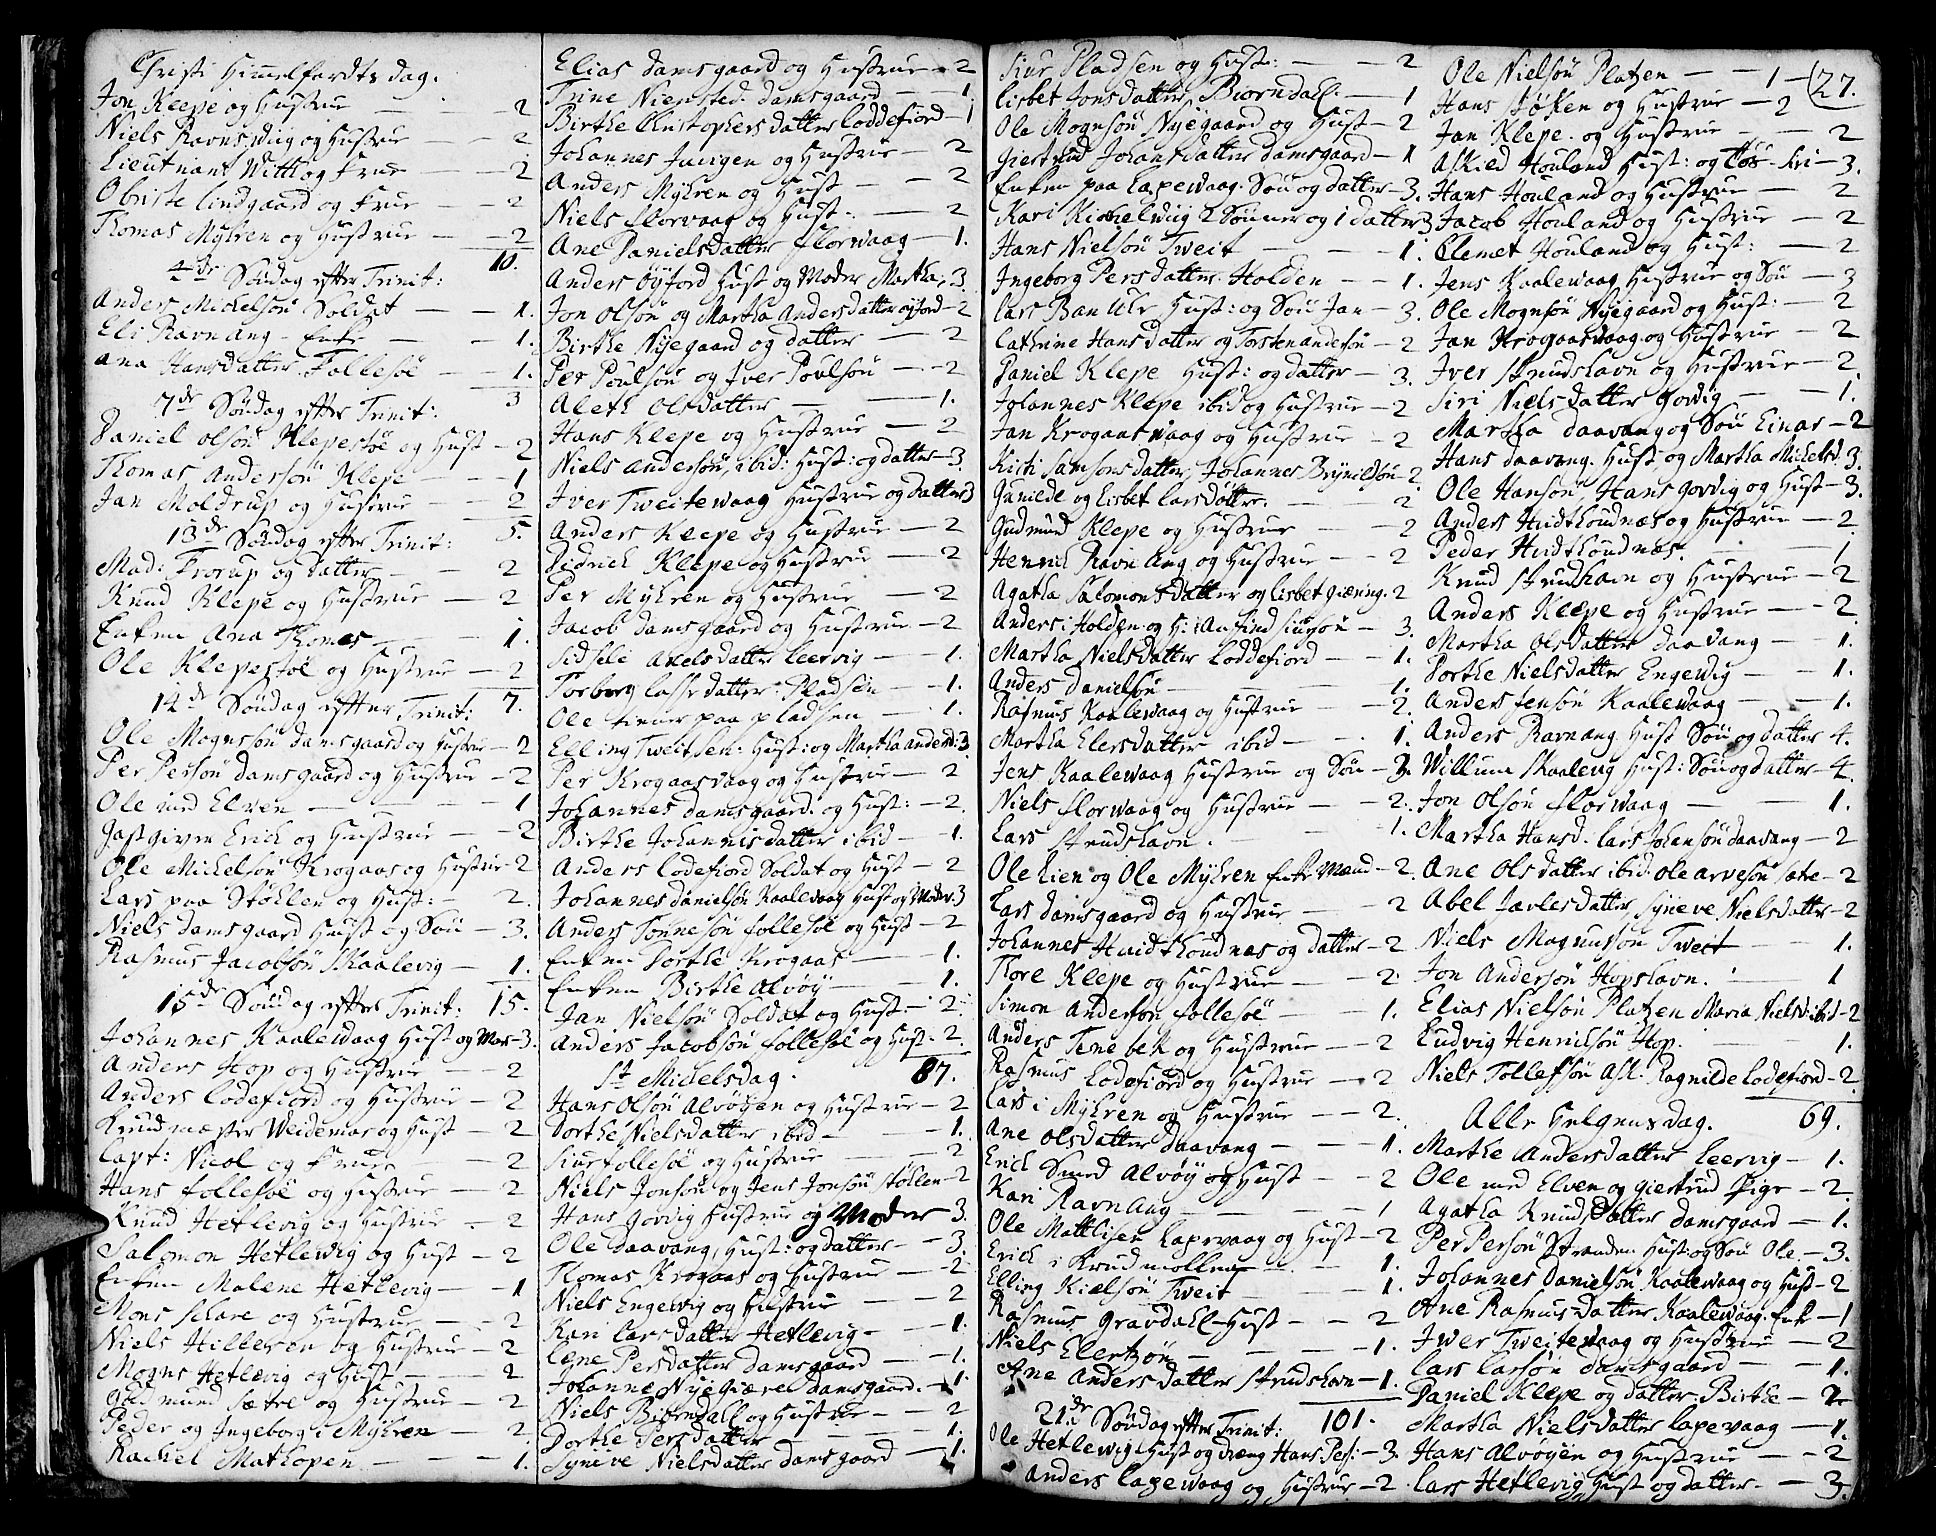 Christi Himmelfardts dag.
Jon Klepe og Hustrue — 2
Niels Ravns Wiig og Hustrue — 2
Lieutnant Witt og Frue — 2
Obriste Lindgaard og Frue — 2
Thomas Myhren og Hustrue — 2
10.
4de Søndag efter Trinit:
Anders Mickelsøn Soldat — 1.
Eli Ravnang Enke — 1.
Ana Hansdatter Follesøe — 1.
3
7de Søndag efter Trinit:
Daniel Olsøn Klepestøe og Hust — 2
Thomas Andersøn Klepe — 1
Jan Moldrup og Hustrue — 2
5.
13de Søndag efter Trinit:
Mad: Frorup og datter — 2
Knud Klepe og Hustrue — 2
Enken Ana Thomes — 1.
Ole Klepestøe og Hustrue — 2
7.
14de Søndag efter Trinit:
Ole Mognssøn Damsgaard og Hustrue — 2
Per Persøn Damsgaard og Hustrue — 2
Ole ved Elven — 1
Gastgiver Erich og Hustrue — 2
Ole Michelsøn Krogaas og Hustrue 2
Lars paa Støhlen og Hust: — 2.
Niels Damsgaard Hust og Søn — 3.
Rasmus Jacobsøn Skaalevig — 1.
15.
15de Søndag efter Trinit:
Johannes Kaalewaag Hust og Mor — 3.
Anders Hop og Hustrue — 2
Anders Lodefiord og Hustrue — 2
Krudmæster Weidemar og Hust — 2
Capt: Nicol og Frue — 2
Hans Follesøe og Hustrue — 2
Knud Hetlevig og Hustrue — 2
Salomon Hetlewig og Hust — 2
Enken Malene Hetlevig — 1
Mons Schare og Hustrue — 2
Niels Hilleren og Hustrue — 2
Mogns Hetlevig og Hust — 2
Gudmund Sætre og Hustrue — 2
Peder og Ingeborg i Myhren — 2
Rachel Mathopen — 1.
Elias Damsgaard og Hustrue — 2
Trine Niensted Damsgaard — 1
Birthe Christophersdatter Loddefiord — 1
Johannes Jurigen og Hustrue — 2
Anders Myhren og Hust — 2
Niels Florvaag og Hust — 2
Ane Danielsdatter Florwaag — 1.
Anders Øyjord Hust og Moder Martha, 3
Jon Olsøn og Martha Andersdatter Øyjord — 2
Birthe Nyegaard og datter — 2
Per Poulsøn og Iver Poulsøn — 2
Aleth Olsdatter — 1.
Hans Klepe og Hustrue — 2
Niels Andersøn, ibid: Hust: og datter — 3.
Iver Tweitewaag Hustrue og datter 3
Anders Klepe og Hustrue — 2
Didrich Klepe og Hustrue — 2
Per Myhren og Hustrue — 2
Jacob Damsgaard og Hustrue — 2
Sidsele Axelsdatter Leervig — 1.
Torborg Lassedatter Pladsen — 1.
Ole tiener paa pladsen — 1.
Elling Tweitsen: Hust: og Martha Andersd: 3
Per Krogaasvaag og Hustrue — 2
Johannes Damsgaard og Hust: — 2
Birthe Johannisdatter ibid — 1.
Anders Lodefiord Soldat og Hust — 2
Johannes Danielsøn Kaalewaag Hust og Moder 3
Anders Tønnesøn Follesøe og Hust — 2
Enken Dorthe Krogaas — 1.
Enken Birthe Alvøy — 1.
Jan Nielsøn Soldat og Hust: — 2.
Anders Jacobsøn Follesøe og Hust. 2.
87.
St. Michelsdag.
Hans Olsøn Alvøyen og Hustrue — 2
Dorthe Nielsdatter ibid — 1.
Siur Follesøe og Hustrue — 2
Niels Jonsøn og Jens Jonsøn Støllen — 2
Hans Govdig Hustrue og Moder 3.
Ole Daavang, Hust: og datter — 3.
Thomas Krogaas og Hustrue — 2
Niels Engewig og Hustrue — 2
Kari Larsdatter Hetlevig — 1.
Lene Persdatter Damsgaard — 1.
Johanne Nyegiære Damsgaard. — 1
Niels Biørndall og Hustrue — 2
Dorthe Persdatter — 1.
Syneve Nielsdatter Damsgaard — 1.
Siur Pladsen og Hust: — 2
Lisbet Jonsdatter, Biørndall. — 1
Ole Mognsøn Nyegaard og Hust — 2
Giertrud Johansdatter Damsgaard — 1
Enken paa Lapewaag Søn og datter — 3.
Kari Kirkelwiig 2 Sønner og 1 datter 3
Hans Nielsøn Tweit — 1.
Ingeborg Persdatter Holden — 1.
Lars Hust: og Søn Jan — 3.
Cathrine Hansdatter og Torsten Andersøn — 2
Daniel Klepe Hust: og datter — 3.
Johannes Klepe ibid og Hustrue — 2
Jan Krogaaswaag og Hustrue — 2
Kisti Samsonsdatter, Johannes Brynildsøn — 2
Gunilde og Lisbet Larsdøttre. — 2
Gudmund Klepe og Hustrue — 2
Henrich Ravnang og Hustrue — 2
Agatha Salomonsdatter og Lisbet Giæring. 2
Anders i Holden og H: Anfind Siursøn — 3.
Martha Nielsdatter Loddefiord — 1.
Anders Danielsøn — 1.
Rasmus Kaalewaag og Hustrue — 2.
Martha Elersdatter ibid — 1.
Jens Kaalewaag Hustrue og Søn — 3.
Niels Florwaag og Hustrue — 2.
Lars Strudshavn. — 1.
Ole Lien og Ole Myhren Enke Mænd — 2.
Lars Damsgaard og Hustrue — 2
Johannes Huidthoudnæs og datter — 2
Thore Klepe og Hustrue — 2.
Simon Andersøn Follesøe — 1.
Anders Tenebek og Hustrue — 2
Rasmus Lodefiord og Hustrue — 2
Lars i Myhren og Hustrue — 2.
Ane Olsdatter Daavang — 1.
Erich Smed Alvøy og Hust — 2
Kari Ravnang — 1
Ole Mattisen Lapewaag og Hust — 2
Erich i Krudmøllen — 1.
Elling Kielsøn Tweit — 1.
Rasmus Gravdahl Hust — 2
Niels Elertzøn — 1.
Ane Andersdatter Strudshavn — 1.
101.
21de Søndag efter Trinit:
Ole Hetlewig Hust og dreng Hans Pers: — 3.
Anders Lapewaag og Hustrue — 2
Ole Nielsøn Platzen — 1
(27.
Hans Støken og Hustrue — 2
Jan Klepe og Hustrue — 2
Askied Houland Hust: og Siri — 3.
Hans Houland og Hustrue — 2
Jacob Houland og Hustrue — 2
Clemet Houland og Hust: — 2
Jens Kaalewaag Hustrue og Søn — 3
Ole Mognsøn Nyegaard og Hust: — 2
Jan Krogaaswaag og Hustrue — 2
Iver Strudshavn og Hustrue — 2.
Siri Nielsdatter Govdig — 1.
Martha Daavang og Søn Einar — 2
Hans Daavang. Hust og Martha Michelsd. 3.
Ole Hansøn, Hans Govdig og Hust — 3.
Anders Huidthoudnæs og Hustrue — 2
Peder Huidthoudnæs. — 1
Knud Strudshavn og Hustrue — 2
Anders Klepe og Hustrue — 2
Martha Olsdatter Daavang — 1.
Dorthe Nielsdatter Engewig — 1.
Anders Jensøn Kaalewaag — 1.
Anders Ravnang Hust Søn og datter 4.
Willum Skaalevig Hust: Søn og datter — 4.
Jon Olsøn Florwaag — 1.
Martha Hansd. Lars Johansøn Daavang — 2
Ane Olsdatter ibid: Ole Arvesøn Sætre — 2
Abel Jarlesdatter Syneve Nielsdatter — 2
Niels Magnussøn Tweit — 1.
Jon Andersøn Hopshavn. — 1
Elias Nielsøn Platzen Maria Nielsd: ibid — 2
Ludvig Hennilsøn Hop. — 1.
Niels Tollefsøn Ask. Ragnilde Lodefiord — 2
69.
Alle Helgens dag.
Marthe Andersdatter Leervig — 1.
Ole ved Elven og Giertrud Pige — 2.
Agatha Knudsdatter Damsgaard — 1.
Per Persøn Stranden Hust: og Søn Ole. — 3.
Johannes Danielsøn Kaalewaag og Hust — 2
Ane Rasmusdatter Kaalewaag. Enke — 1
Iwer Tweitewaag og Hustrue — 2
Lars Larsøn Damsgaard — 1.
Daniel Klepe og datter Birthe — 2
Martha Nielsdatter Lapevaag — 1.
Hans Alvøyen og Hustrue — 2
Lars Hetlevig Hust og datter — 3.